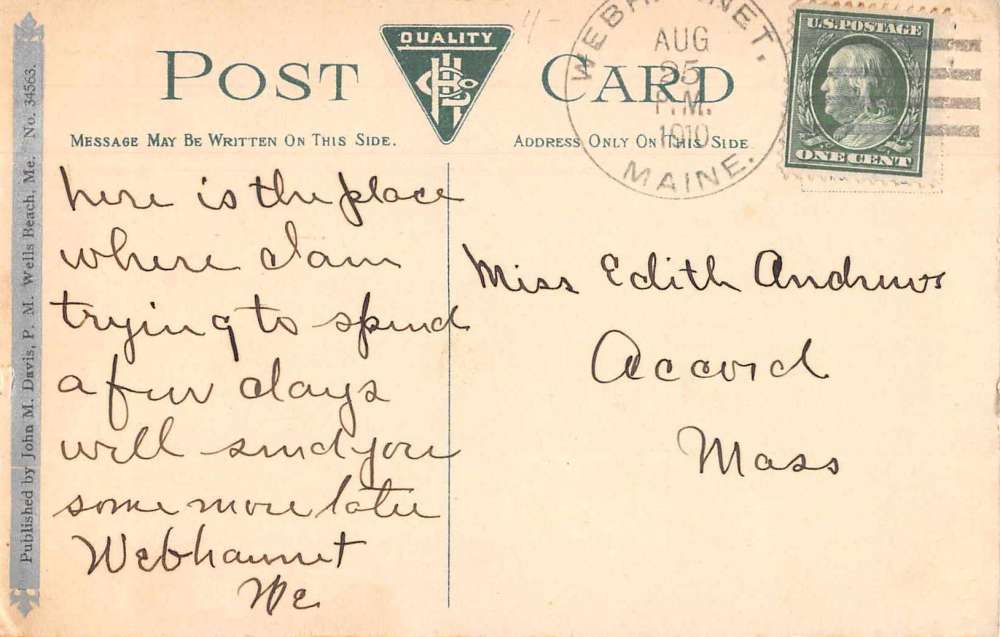 POST CARD
QUALITY
MESSAGE MAY BE WRITTEN ON THIS SIDE.
ADDRESS ONLY ON THIS SIDE
WEBHANNET, MAINE.
AUG
25
P.M.
1910
U.S. POSTAGE
ONE CENT
Published by John M. Davis, P. M. Wells Beach, Me. No. 34563.
here is the place
where I am
trying to spend
a few days
will send you
some more later
Webhannet
Me.
Miss Edith Andrews
Accord
Mass